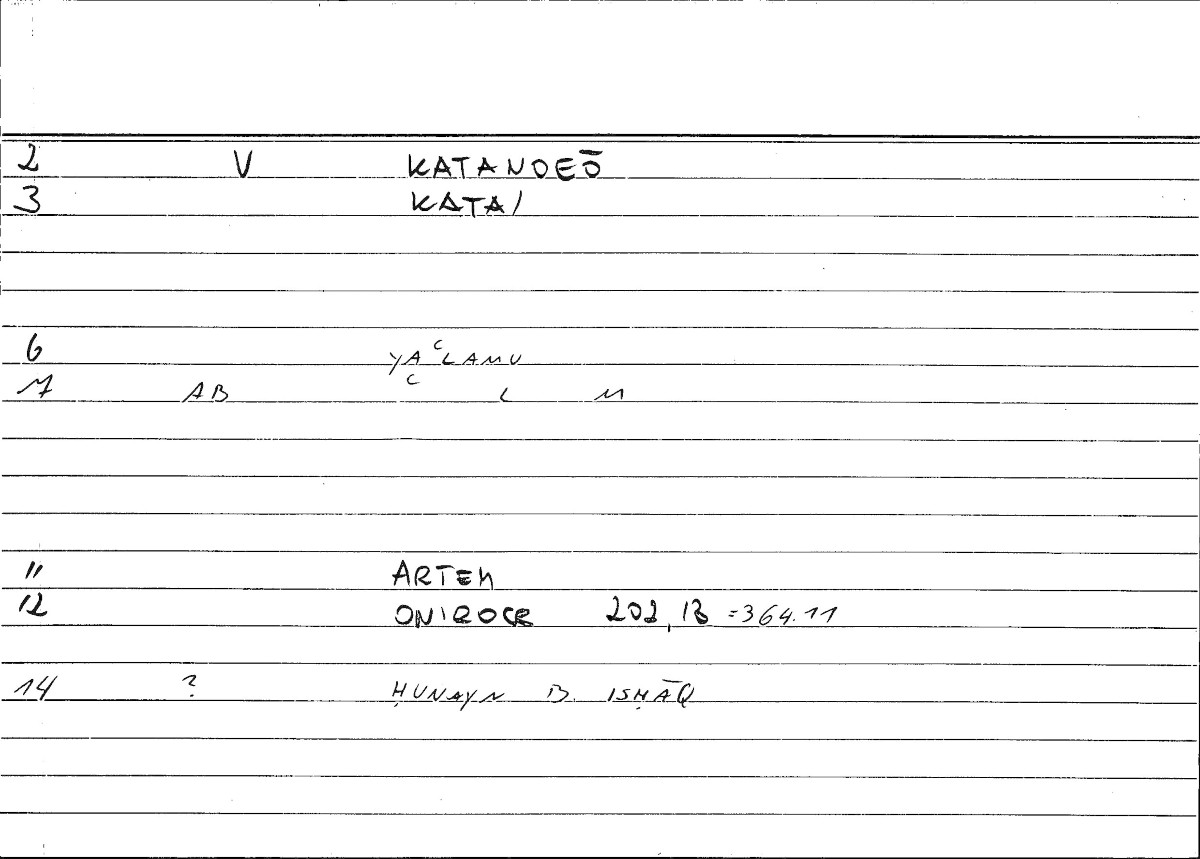 2 V KATANOEŌ
3 KATAI
6 YAʿLAMU
7 AB ʿ L M
11 ARTEM
12 ONIROCR 202,13 =364.11
14 ? ḤUNAYN B. ISḤĀQ